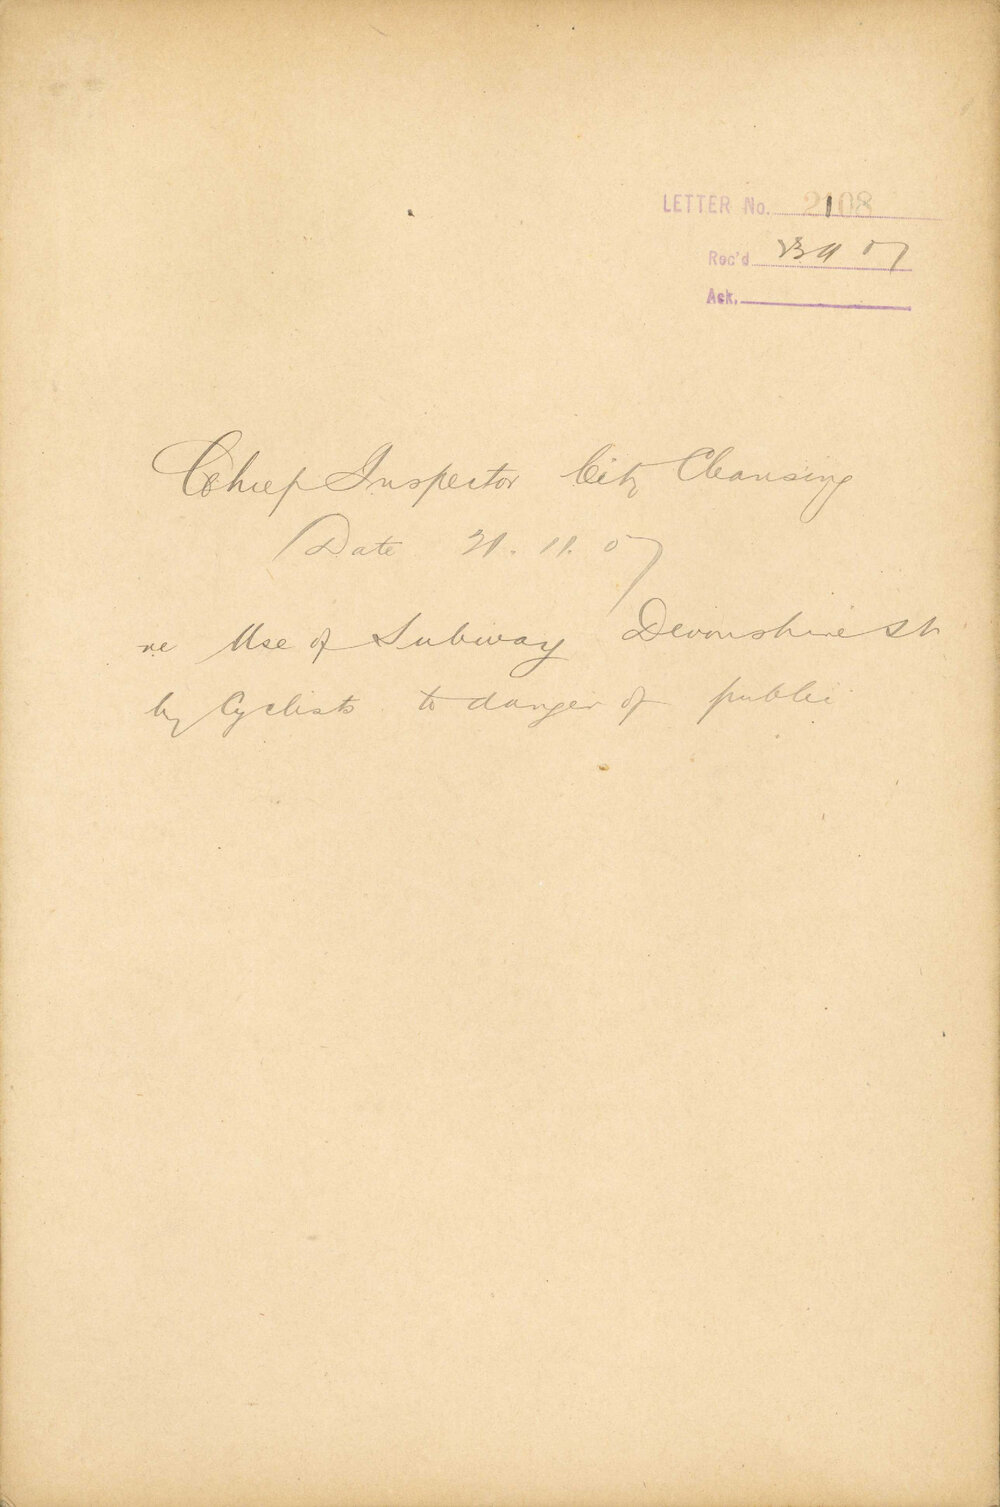 LETTER No. 2108
Rec'd 23 11 07
Ack.
Chief Inspector City Cleansing
Date 21. 11. 07
re Use of Subway Devonshire St
by Cyclists to danger of public